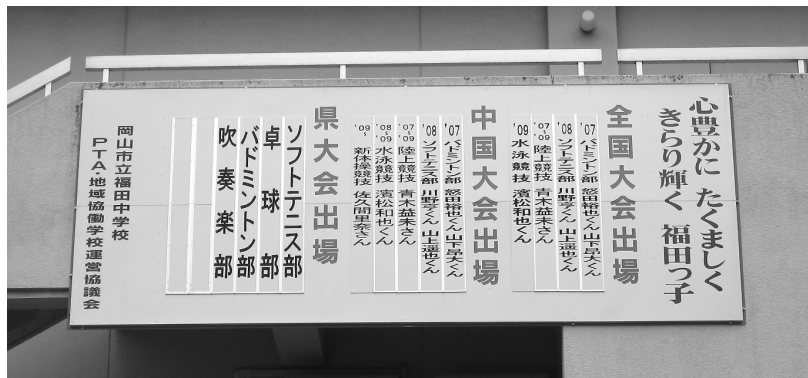 心豊かに たくましく
きらり輝く 福田っ子
全国大会出場
'07 バドミントン部 悠田裕也くん 山下昂大くん
'08 ソフトテニス部 川野亨くん 山上遥也くん
'07~09 陸上競技 青木益未さん
'09 水泳競技 濱松和也くん
中国大会出場
'07 バドミントン部 悠田裕也くん 山下昂大くん
'08 ソフトテニス部 川野亨くん 山上遥也くん
'07~09 陸上競技 青木益未さん
'08~09 水泳競技 濱松和也くん
'09~ 新体操競技 佐久間里奈さん
県大会出場
ソフトテニス部
卓球部
バドミントン部
吹奏楽部
岡山市立福田中学校
PTA・地域協働学校運営協議会